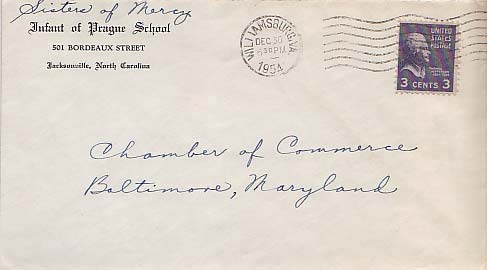 Sisters of Mercy
Infant of Prague School
501 BORDEAUX STREET
Jacksonville, North Carolina
WILLIAMSBURG, VA.
DEC 30
PM
1954
UNITED STATES
POSTAGE
3 CENTS 3
Chamber of Commerce
Baltimore, Maryland